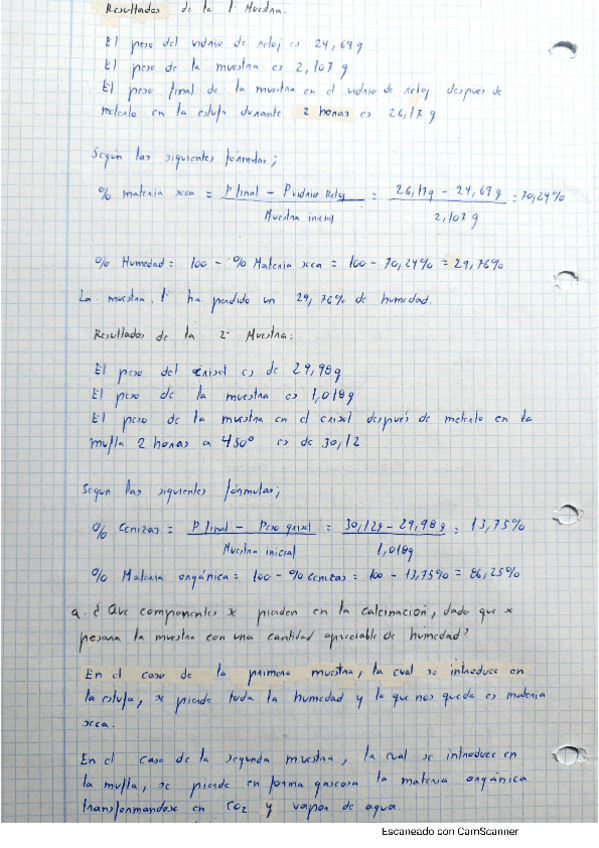 Resultados de la 1ª Muestra.
El peso del vidrio de reloj es 24,69g
El peso de la muestra es 2,107 g
El peso final de la muestra en el vidrio de reloj despues de
meterlo en la estufa durante 2 horas es 26,17 g
Según las siguientes fórmulas;
% materia seca = P final - P vidrio Reloj / Muestra inicial = 26,17g - 24,69g / 2,107 g = 70,24%
% Humedad = 100 - % Materia seca = 100 - 70,24% = 29,76%
La muestra 1ª ha perdido un 29,76% de humedad.
Resultados de la 2ª Muestra:
El peso del crisol es de 29,98g
El peso de la muestra es 1,018g
El peso de la muestra en el crisol después de meterlo en la
mufla 2 horas a 450° es de 30,12
Segun las siguientes fórmulas;
% Cenizas = P final - Peso crisol / Muestra inicial = 30,12g - 29,98g / 1,018g = 13,75%
% Materia orgánica = 100 - % Cenizas = 100 - 13,75% = 86,25%
a. ¿ Que componentes se pierden en la calcinación, dado que se
pesara la muestra con una cantidad apreciable de humedad?
En el caso de la primera muestra, la cual se introduce en
la estufa, se pierde toda la humedad y lo que nos queda es materia
seca.
En el caso de la segunda muestra, la cual se introduce en
la mufla, se pierde en forma gaseosa la materia orgánica
transformandose en CO2 y vapor de agua.
Escaneado con CamScanner